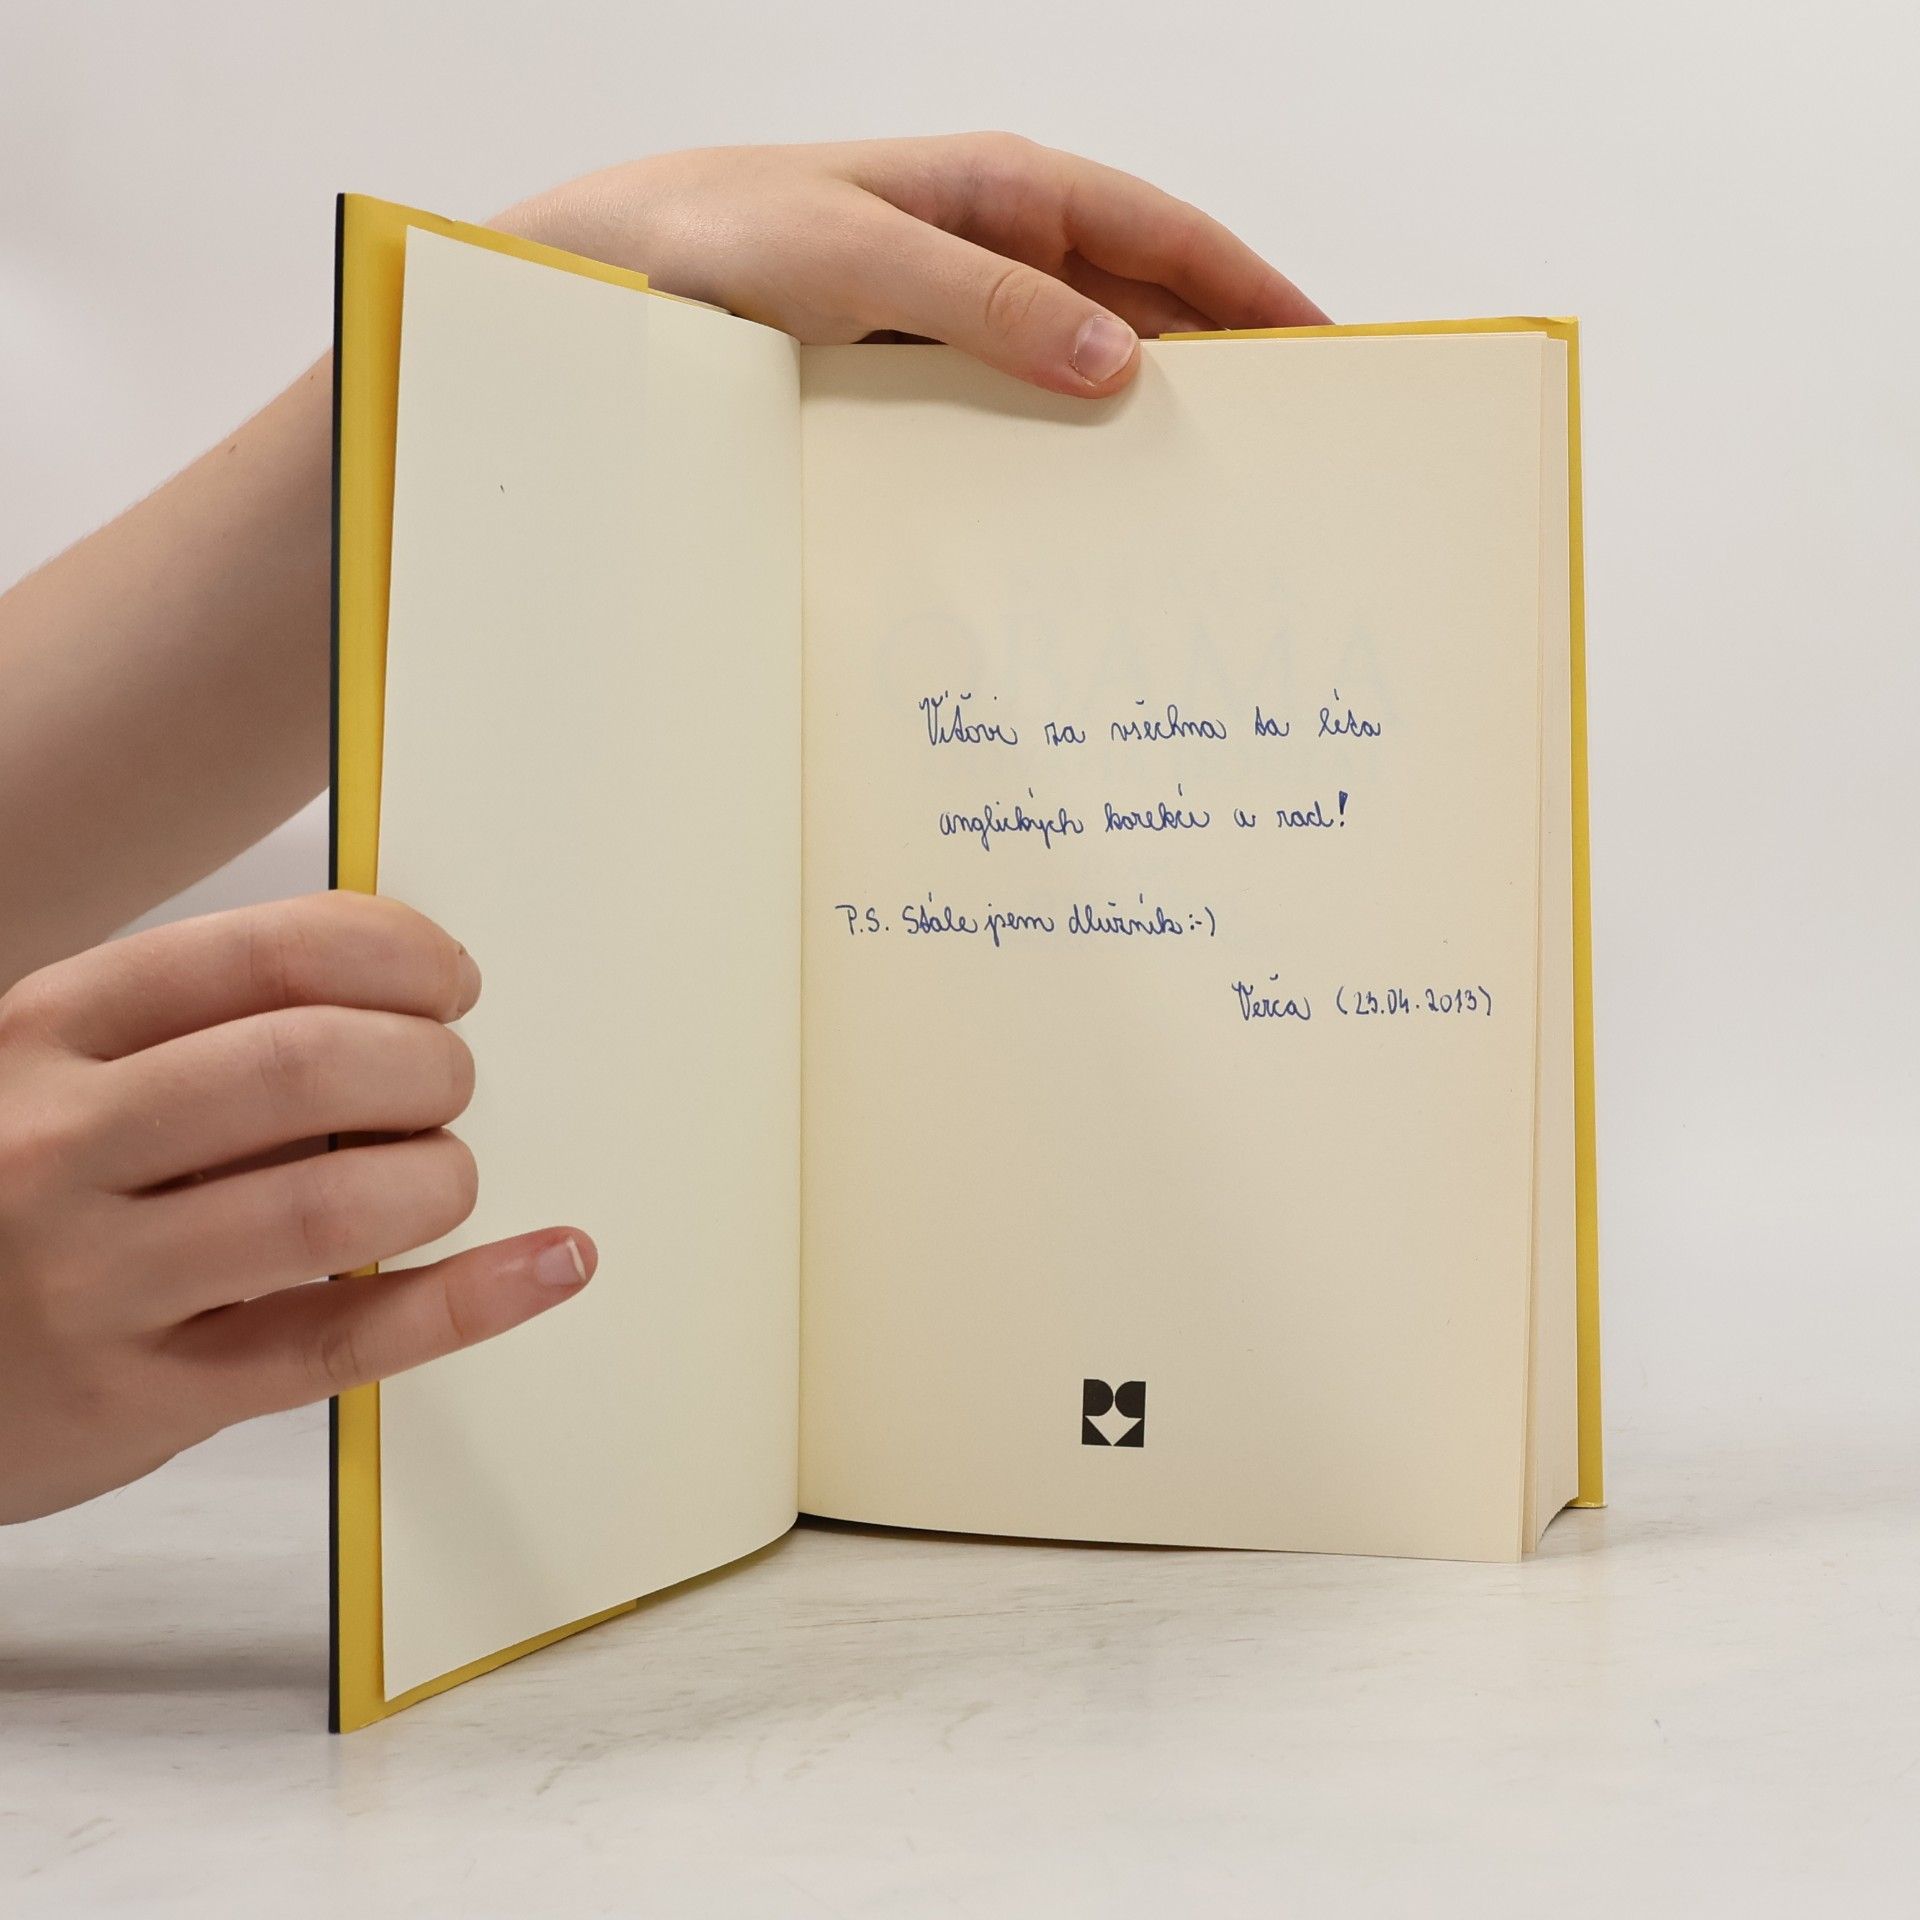 Víťovi za všechna ta léta
anglických korekcí a rad!
P.S. Stále jsem dlužník :-)
Verča (23.04.2013)